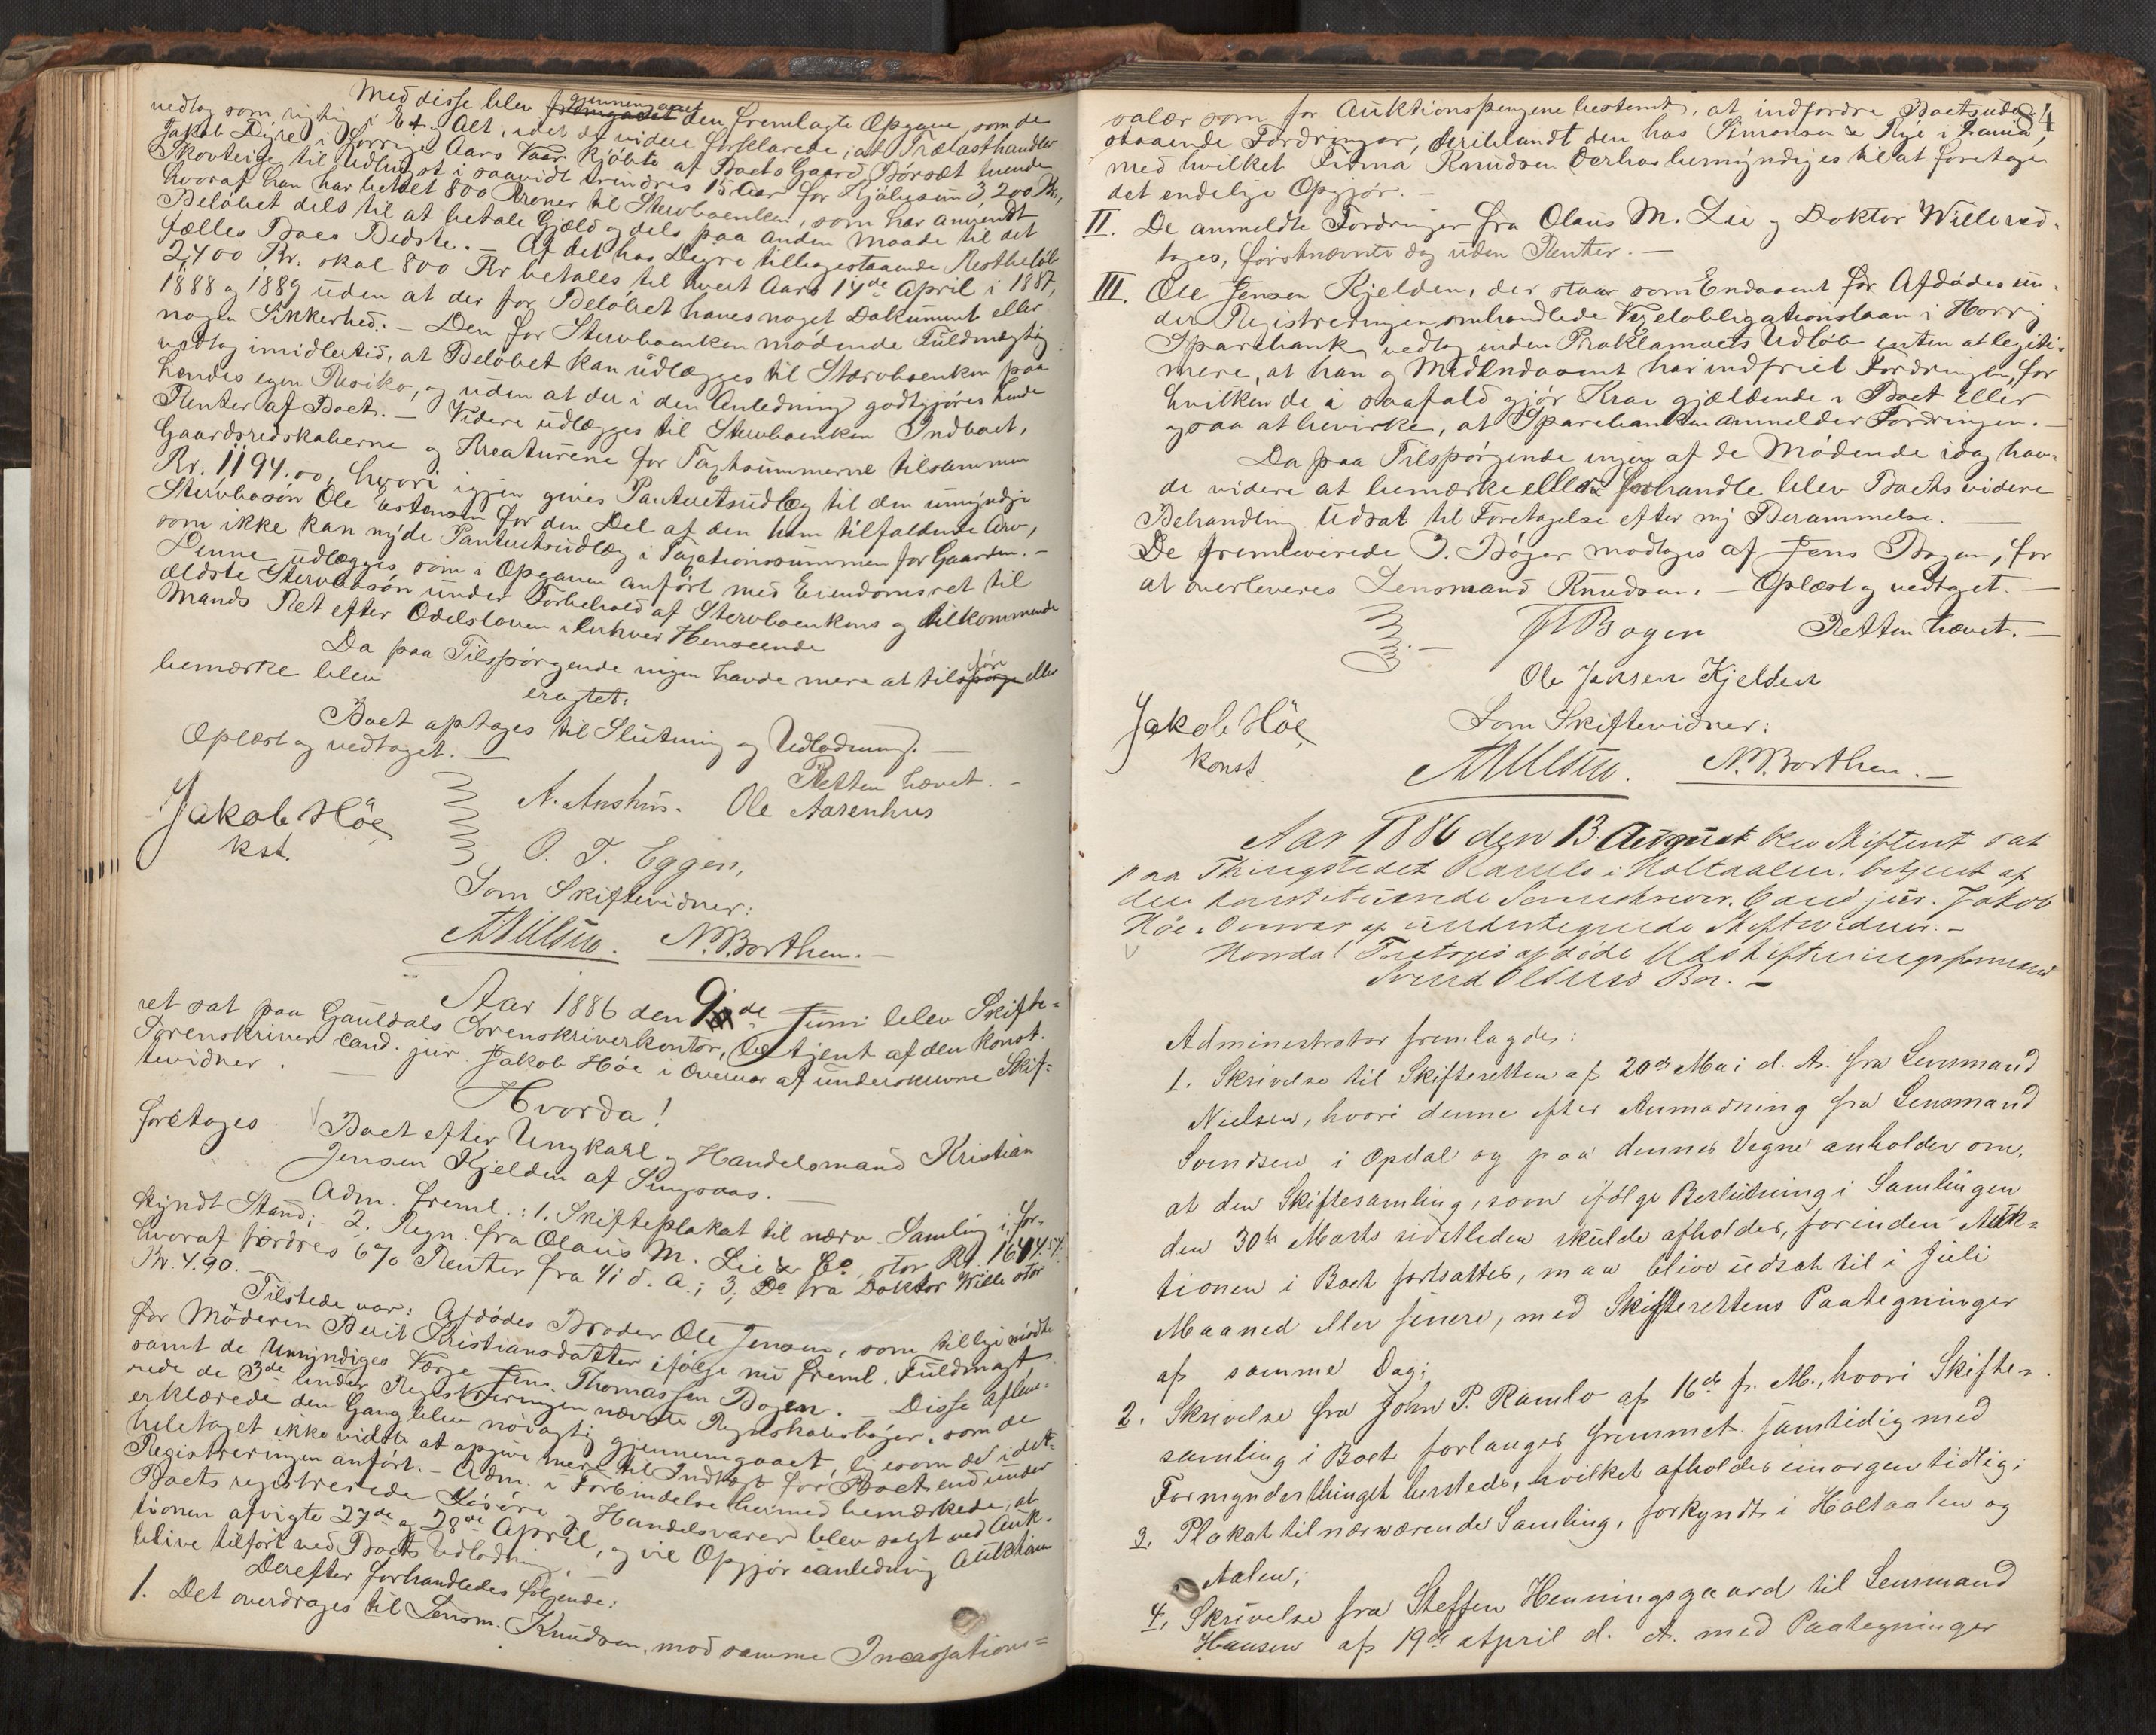 Med disse blev fremgaaet gjennemgaaet den fremlagte Opgave, som de
vedtog som rigtig i Et og Alt, idet de videre forklarede, at Trælasthandler
Jakob Digre i forrige Aars Vaar kjøbte af Boets Gaard Børsæt tvende
Skovteige til Udhugst i saavidt trindres 15 Aar for Kjøbesum 3,200 Kr,
hvoraf han har betalt 800 Kroner til Stervboenken, som har anvendt
Beløbet dels til at betale Gjæld og dels paa anden Maade til det
fælles Boes Bedste. – Af det hos Degre tilbagestaaende Restbeløb
2,400 Kr. skal 800 Kr betales til hvert Aars 14de April i 1887,
1888 og 1889 uden at der for Beløbet haves noget Dokument eller
nogen Sikkerhed. – Den for Stervboenken mødende Fuldmægtig
vedtog imidlertid, at Beløbet kan udlægges til Stærvboenken paa
hendes egen Resiko, og uden at der i den Anledning godtgjøres hende
Renter af Boet. – Videre udlægges til Stervboenken Indboet,
Gaardsredskaberne og Kreaturene for Taxtsummerne tilsammen
Kr. 1194.00, hvori igjen gives Panteretsudlæg til den umyndige
Stervbosøn Ole Estensen for den Del af den ham tilfaldende Arv,
som ikke kan nyde Panteretsudlæg i Taxationssummen for Gaarden. –
Denne udlægges som i Opgaven anført med Eiendomsret til
ældste Stervbosøn under Forbehold af Stervboenkens og tilkommende
Mands Ret efter Odelsloven i enhver Henseende
Da paa Tilspørgende ingen havde mere at tilspørge føre eller
bemærke blev
eragtet:
Boet optages til Slutning og Udlodning. –
Oplæst og vedtaget. –
Retten hævet. –
Jakob Höe
kst.
N. Aushus. Ole Aarenhus
O. T. Eggen,
Som Skiftevidner:
N. Borthen. –
Aar 1886 den 9de Juni blev Skifte=
ret sat paa Gauldals Sorenskriverkontor, betjent af den konst.
Sorenskriver cand. jur. Jakob Höe i Overvær af underskrevne Skif=
tevidner. –
Hvorda!
foretoges Boet efter Ungkarl og Handelsmand Kristian
Jensen Kjelden af Singsaas. –
Adm. freml.: 1. Skifteplakat til nærv. Samling i for-
kyndt Stand; – 2. Regn. fra Olaus M. Lie & Co. stor Kr. 1644.57.
hvoraf fordres 6% Renter fra 1/1 d. A.; 3, Do fra Doktor Wille stor
Kr. 4.90. –
Tilstede var: Afdødes Broder Ole Jensen, som tillige mødte
for Moderen Berit Kristiansdatter ifølge nu freml. Fuldmagt
samt de Umyndiges Værge Jens Thomassen Bogen. – Disse afleve-
rede de 3de under Registreringen nævnte Regnskabsbøger, som de
erklærede den Gang blev nøiagtig gjennemgaaet, ligesom de i det
heletaget ikke vidste at opgive mere til Indtægt for Boet end under
Registreringen anført. – Adm. i Forbindelse hermed bemærkede, at
Boets registrerede Løsøre og Handelsvarer blev solgt ved Auk-
tionen afvigte 27de og 28de April, og vil Opgjør i anledning Auktion
blive tilført ved Boets Udlodning
Derefter forhandledes følgende:
1. Det overdroges til Lensm. Knudsen, mod samme Incassations=
84
salær som for Auktionspengene bestemt, at indfordre Boets uda-
staaende Fordringer, deriblandt den hos Simonsen & Rye i
med hvilket Firma Knudsen derhos bemyndiges til at foretage
det endelige Opgjør. –
II. De anmeldte Fordringer fra Olaus M. Lie og Doktor Wille ved-
tages, førstnævnte dog uden Renter. –
III. Ole Jensen Kjelden, der staar som Endosent for Afdødes un-
der Registreringen omhandlede Vexelobligationslaan i Horrig
Sparebank, vedtog inden Proklamaets Udløb enten at legiti-
mere, at han og Medendosent har indfriet Fordringen, for
hvilken de i saafald gjør Krav gjældende i Boet eller
ogsaa at bevirke, at Sparebanken anmelder Fordringen. –
Da paa Tilspørgende ingen af de Mødende idag hav-
de videre at bemærke eller forhandle blev Boets videre
Behandling udsat til Foretagelse efter ny Berammelse. –
De fremleverede 3. Bøger modtoges af Jens Bogen, for
at overleveres Lensmand Knudsen. – Oplæst og vedtaget. –
JT Bogen Retten hævet. –
Ole Jensen Kjelden
Jakob Höe
konst.
Som Skiftevidner:
N. Borthen. –
Aar 1886 den 13. August blev Skifteret sat
paa Thingstedet Ramlo i Holtaalen, betjent af
den konstituerede Sorenskriver, Cand. jur. Jakob
Höe i Overvær af undertegnede Skiftevidner. –
Hvorda! Foretoges afdøde Udskiftningsformand
Svend Olsens Bo. –
Administrator fremlagdes:
1. Skrivelse til Skifteretten af 20de Mai d. A. fra Lensmand
Nielsen, hvori denne efter Anmodning fra Lensmand
Svendsen i Opdal og paa dennes Vegne anholder om,
at den Skiftesamling, som ifølge Beslutning i Samlingen
den 30te Marts sidstleden skulde afholdes, forinden Auk=
tionen i Boet fortsattes, maa blive udsat til i Juli
Maaned eller senere, med Skifterettens Paategninger
af samme Dag;
2. Skrivelse fra John P. Ramlo af 16de f. M., hvori Skifte=
samling i Boet forlanges fremmet samtidig med
Formynderthinget hersteds, hvilket afholdes imorgen tidlig;
3. Plakat til nærværende Samling, forkyndt i Holtaalen og
Aalen;
4. Skrivelse fra Steffen Henningsgaard til Lensmand
Hansen af 19de April d. A. med Paategninger